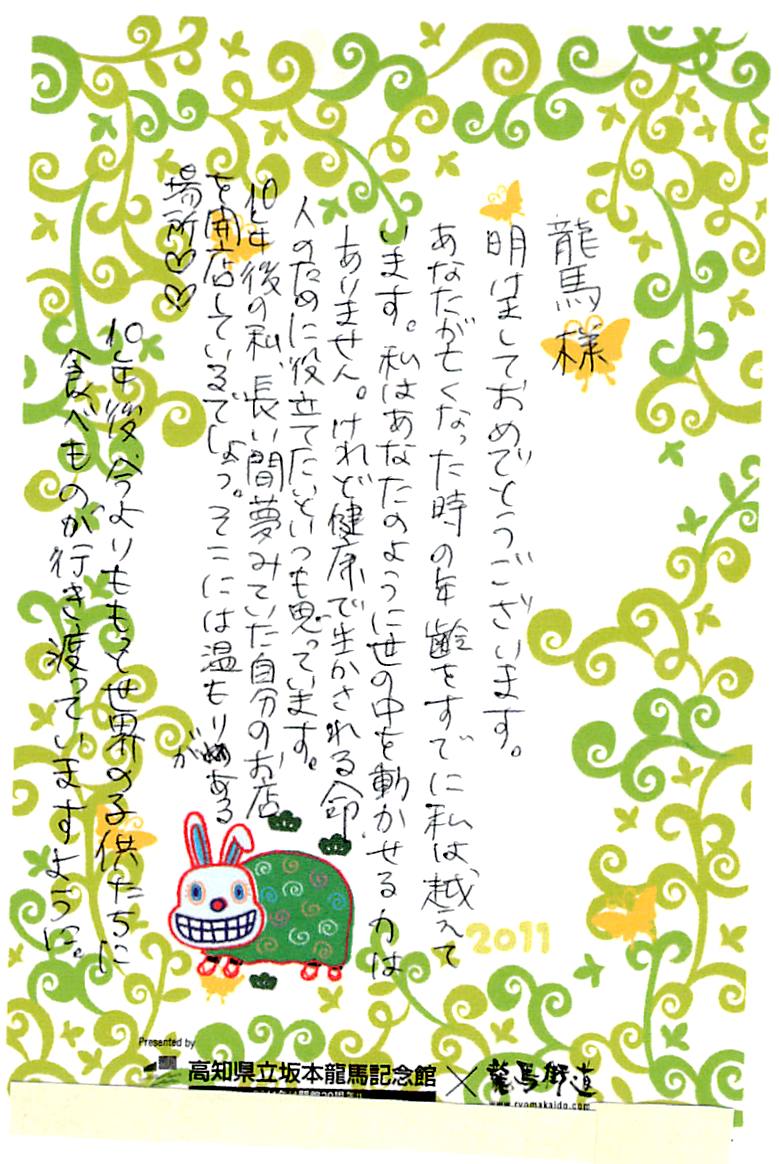 龍馬様
明けましておめでとうございます。
あなたが亡くなった時の年齢をすでに私は、越えて
います。私はあなたのように世の中を動かせる力は
ありません。けれど健康で生かされる命、
人のために役立てたいといつも思っています。
10年後の私、長い間夢みていた自分のお店
を開店しているでしょう。そこには温もりがある
場所♡♡
10年後、今よりももっと世界の子供たちに
食べものが行き渡っていますように。
2011
Presented by
高知県立坂本龍馬記念館×龍馬街道
www.ryomakaido.com